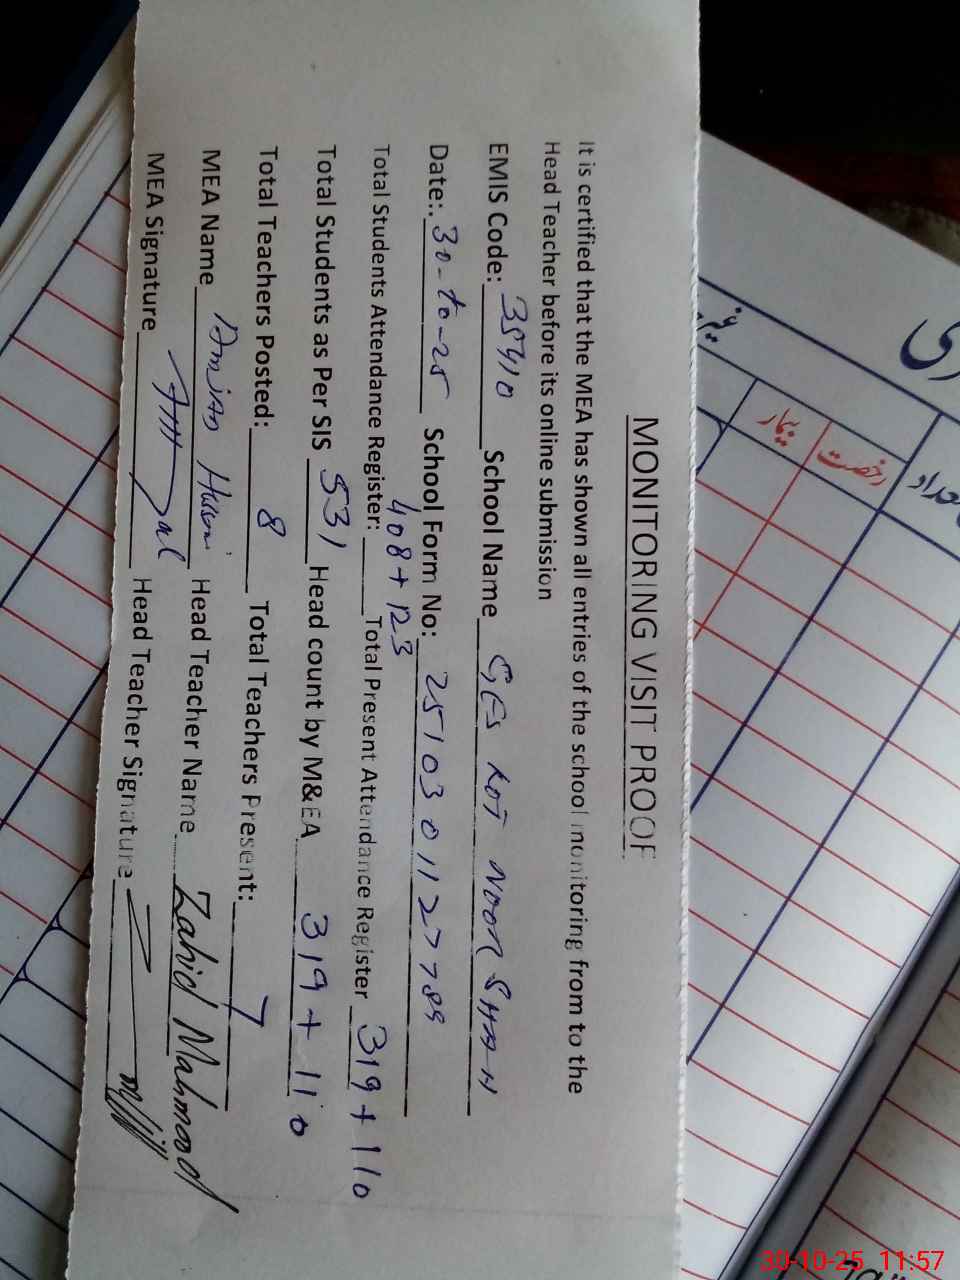 MONITORING VISIT PROOF
It is certified that the MEA has shown all entries of the school monitoring from to the
Head Teacher before its online submission
EMIS Code: 35410 School Name GES KOT NOOR SHAH
Date:. 30-10-25 School Form No:
408+123
Total Students Attendance Register: Total Present Attendance Register 319+110
Total Students as Per SIS 531 Head count by M&EA 319+110
Total Teachers Posted: 8 Total Teachers Present: 7
MEA Name Head Teacher Name Zahid Mahmood
MEA Signature Head Teacher Signature
بیمار
رخصت
تعداد
30-10-25 11:57